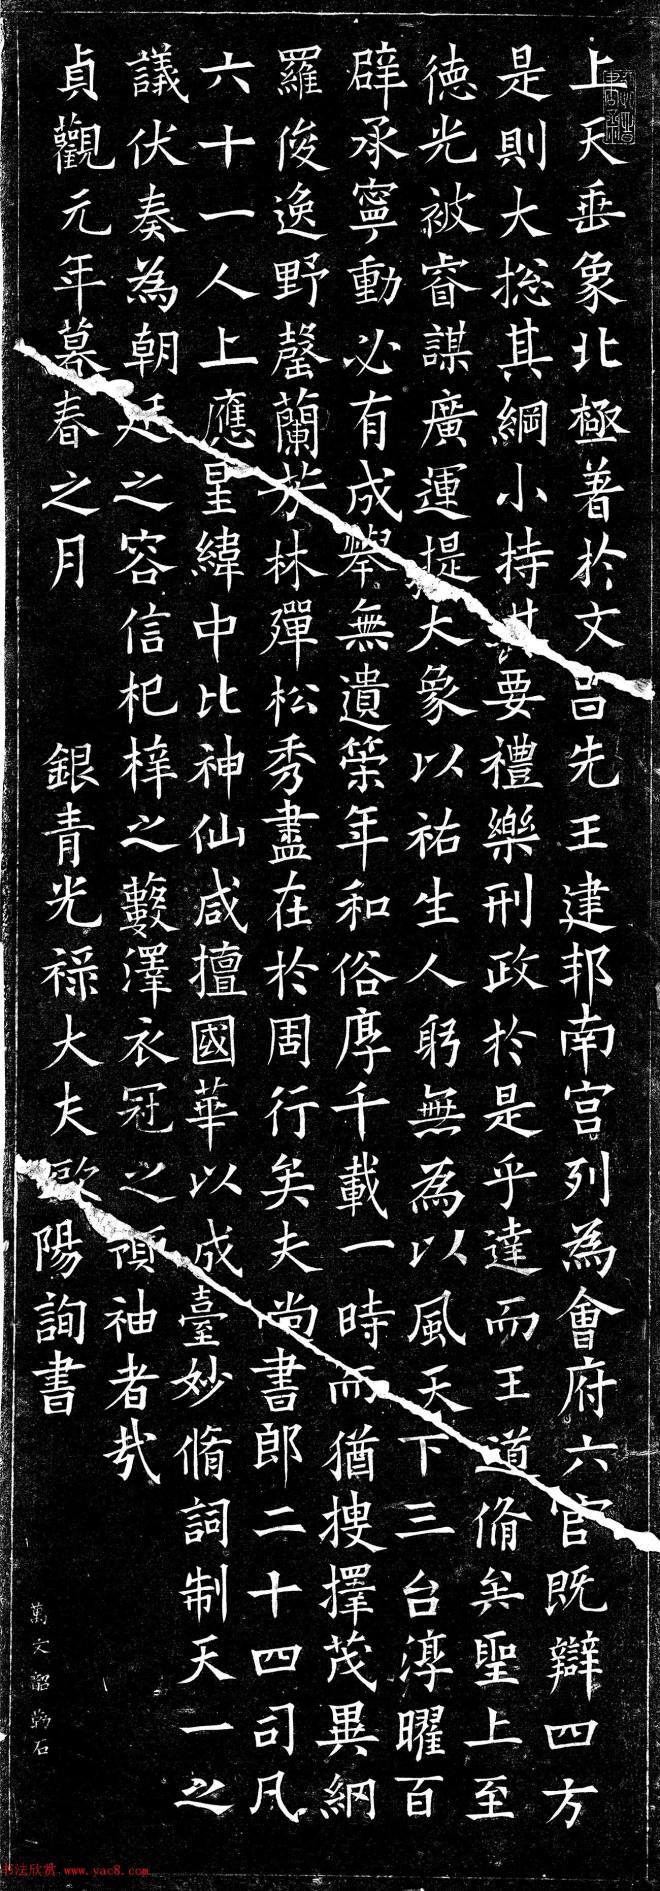 上天垂象北極著於文昌先王建邦南宫列為會府六官既辯四方
是則大揔其綱小持其要禮樂刑政於是乎達而王道脩矣聖上至
德光被睿謀廣運提大象以祐生人躬無為以風天下三台淳曜百
辟承寧動必有成舉無遺筞年和俗厚千載一時而猶搜擇茂異網
羅俊逸野罄蘭芳林殫松秀盡在於周行矣夫尚書郎二十四司凡
六十一人上應星緯中比神仙咸擅國華以成臺妙脩詞制天一之
議伏奏為朝廷之容信杞梓之藪澤衣冠之領袖者㢤
貞觀元年暮春之月 銀青光祿大夫歐陽詢書
萬文韶勒石
书法欣赏 www.yac8.com